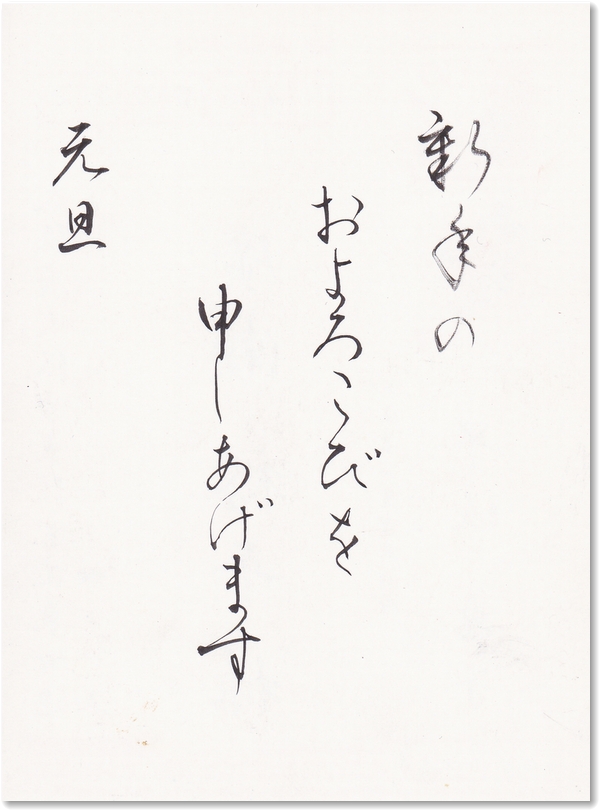 新年の
およろこびを
申しあげます
元旦